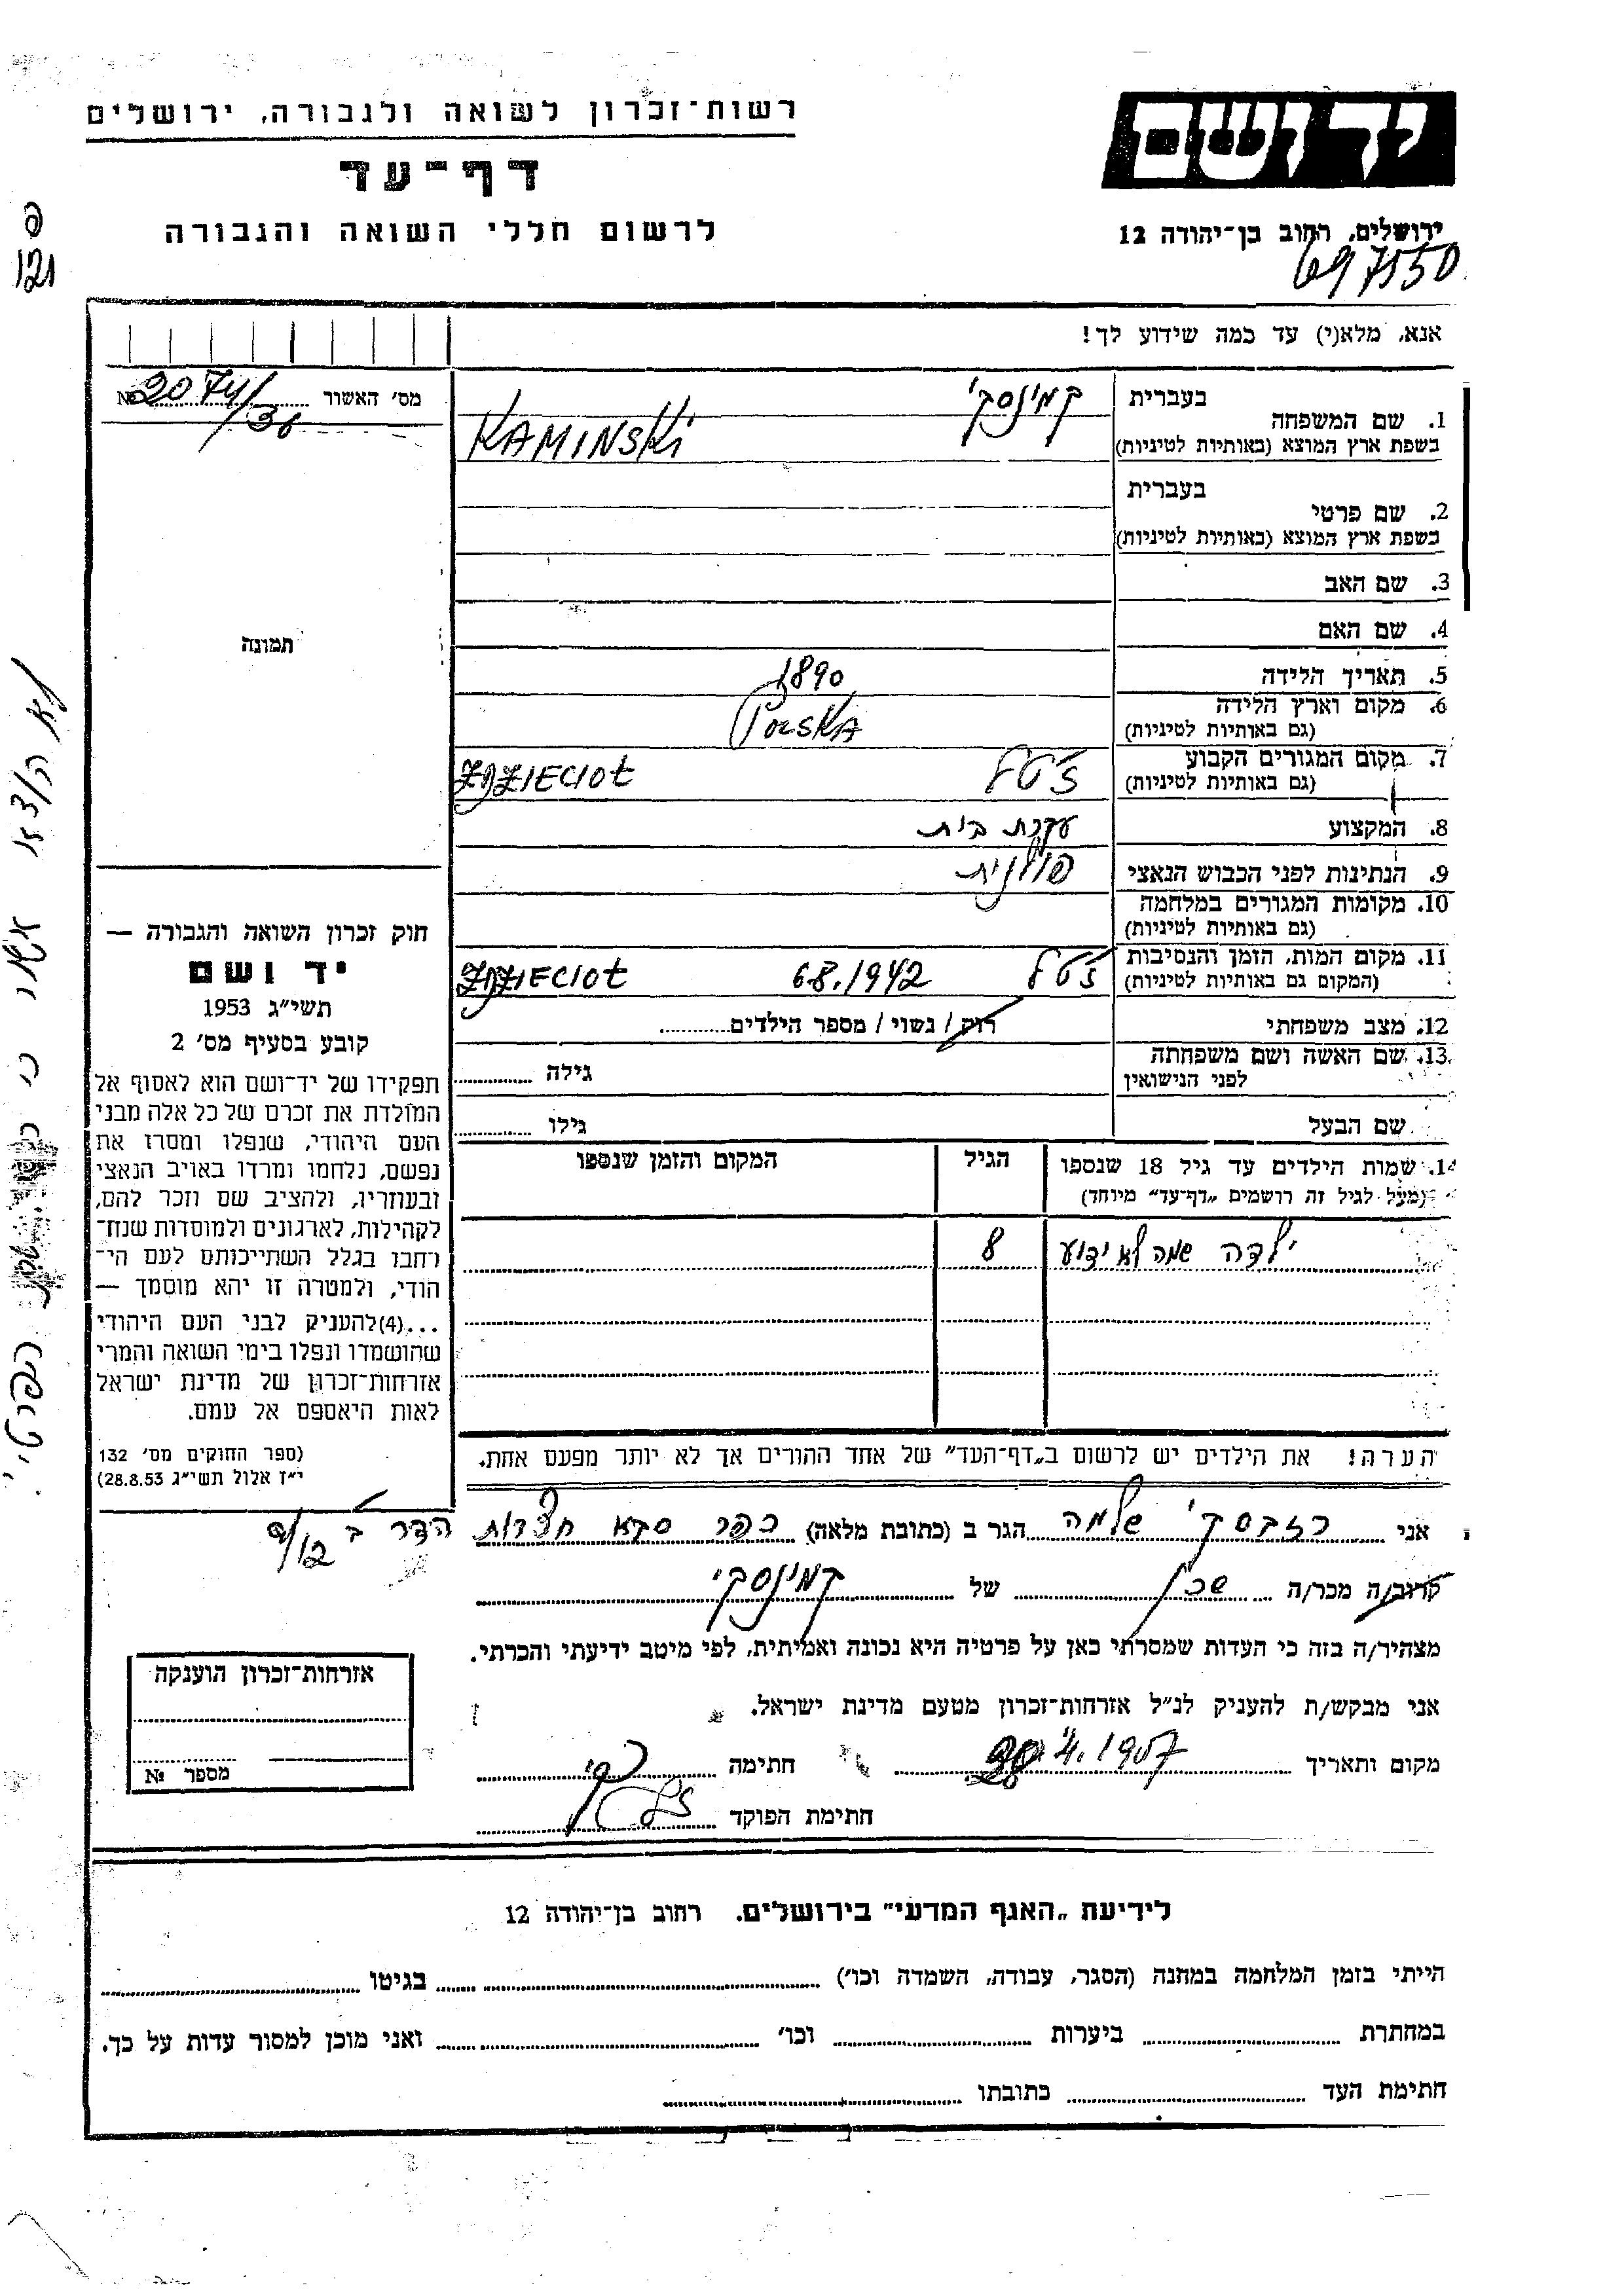 רשות-זכרון לשואה ולגבורה, ירושלים
יד ושם
דף-עד
לרשום חללי השואה והגבורה
ירושלים, רחוב בן-יהודה 12
697150
פ
121
אנא, מלא(י) עד כמה שידוע לך!
מס׳ האשור № 2074/36
1. שם המשפחה
בעברית קמינסקי
בשפת ארץ המוצא (באותיות לטיניות) KAMINSKI
תמונה
בעברית
2. שם פרטי
בשפת ארץ המוצא (באותיות לטיניות)
3. שם האב
4. שם האם
5. תאריך הלידה 1890
6. מקום וארץ הלידה Polska
(גם באותיות לטיניות)
7. מקום המגורים הקבוע ז׳טל
(גם באותיות לטיניות)
8. המקצוע עקרת בית
9. הנתינות לפני הכבוש הנאצי פולנית
10. מקומות המגורים במלחמה
(גם באותיות לטיניות)
11. מקום המות, הזמן והנסיבות ז׳טל 6.8.1942
(המקום גם באותיות לטיניות)
12. מצב משפחתי רווק / נשוי / מספר הילדים
13. שם האשה ושם משפחתה
לפני הנישואין גילה
שם הבעל גילו
14. שמות הילדים עד גיל 18 שנספו הגיל המקום והזמן שנספו
(מעל לגיל זה רושמים „דף-עד״ מיוחד)
ילדה שמה לא ידוע 8
הערה! את הילדים יש לרשום ב„דף-העד״ של אחד ההורים אך לא יותר מפעם אחת.
חוק זכרון השואה והגבורה —
יד ושם
תשי״ג 1953
קובע בסעיף מס׳ 2
תפקידו של יד-ושם הוא לאסוף אל
המולדת את זכרם של כל אלה מבני
העם היהודי, שנפלו ומסרו את
נפשם, נלחמו ומרדו באויב הנאצי
ובעוזריו, ולהציב שם וזכר להם,
לקהילות, לארגונים ולמוסדות שנח־
רחבו בגלל השתייכותם לעם הי־
הודי, ולמטרה זו יהא מוסמך —
...(4)להעניק לבני העם היהודי
שהושמדו ונפלו בימי השואה והמרי
אזרחות-זכרון של מדינת ישראל
לאות היאספם אל עמם.
(ספר החוקים מס׳ 132
י״ז אלול תשי״ג 28.8.53)
הפרטי
אני שלמה הגר ב (כתובת מלאה) כפר סבא חצרות הדר ב
קרוב/ה מכר/ה שכן של קמינסקי
מצהיר/ה בזה כי העדות שמסרתי כאן על פרטיה היא נכונה ואמיתית, לפי מיטב ידיעתי והכרתי.
אני מבקש/ת להעניק לנ״ל אזרחות-זכרון מטעם מדינת ישראל.
מקום ותאריך חתימה
חתימת הפוקד
אזרחות-זכרון הוענקה
מספר №
לידיעת „האגף המדעי״ בירושלים. רחוב בן-יהודה 12
הייתי בזמן המלחמה במחנה (הסגר, עבודה, השמדה וכו׳) בגיטו
במחתרת ביערות וכו׳ ואני מוכן למסור עדות על כך.
חתימת העד כתובתו